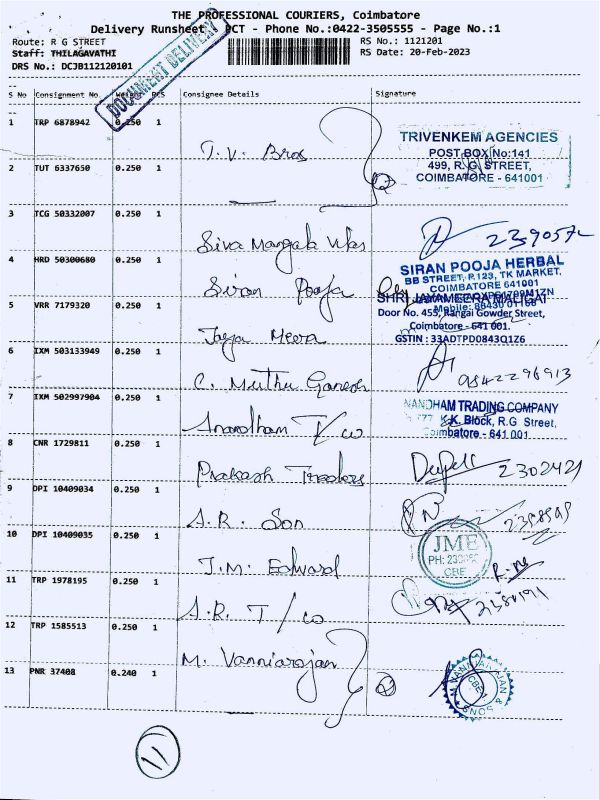 THE PROFESSIONAL COURIERS, Coimbatore
Delivery Runsheet PCT - Phone No.:0422-3505555 - Page No.:1
Route: R G STREET
RS No.: 1121201
Staff: THILAGAVATHI
RS Date: 20-Feb-2023
DRS No.: DCJB112120101
DOCUMENT DELIVERY
S No Consignment No. Weight PCS Consignee Details Signature
1 TRP 6878942 0.250 1 T.V. Bros
TRIVENKEM AGENCIES
POST BOX No:141
499, R.G. STREET,
COIMBATORE - 641001
2 TUT 6337650 0.250 1
3 TCG 50332007 0.250 1 Siva Mangala Vilas
4 HRD 50300680 0.250 1 Siran Pooja
SIRAN POOJA HERBAL
BB STREET, P.123, TK MARKET,
COIMBATORE 641001
5 VRR 7179320 0.250 1 Jaya Meera
SHRI JAYAMEERA MALIGAI
Door No. 455, Rangai Gowder Street,
Coimbatore - 641 001.
GSTIN : 33ADTPD0843Q1Z6
6 IXM 503133949 0.250 1 C. Muthu Ganesh
9842296913
7 IXM 502997904 0.250 1 Anandham T/co
NANDHAM TRADING COMPANY
K.K. Block, R.G Street,
Coimbatore - 641 001
8 CNR 1729811 0.250 1 Prakash Traders
2302421
9 DPI 10409034 0.250 1 A.R. Son
10 DPI 10409035 0.250 1 J.M. Edward
JME
CBE
11 TRP 1978195 0.250 1 A.R. T/co
12 TRP 1585513 0.250 1 M. Vanniarajan
13 PNR 37408 0.240 1
11